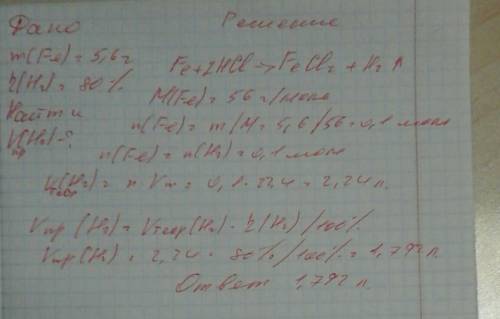 Дано
Решение
m(Fe) = 5,6 г
η(H₂) = 80 %
Найти
Vпр(H₂) - ?
Fe + 2HCl → FeCl₂ + H₂ ↑
M(Fe) = 56 г/моль
n(Fe) = m/M = 5,6/56 = 0,1 моль
n(Fe) = n(H₂) = 0,1 моль
Vтеор(H₂) = n · Vm = 0,1 · 22,4 = 2,24 л.
Vпр (H₂) = Vтеор(H₂) · η(H₂) /100%
Vпр(H₂) = 2,24 · 80% /100% = 1,792 л.
Ответ 1,792 л.